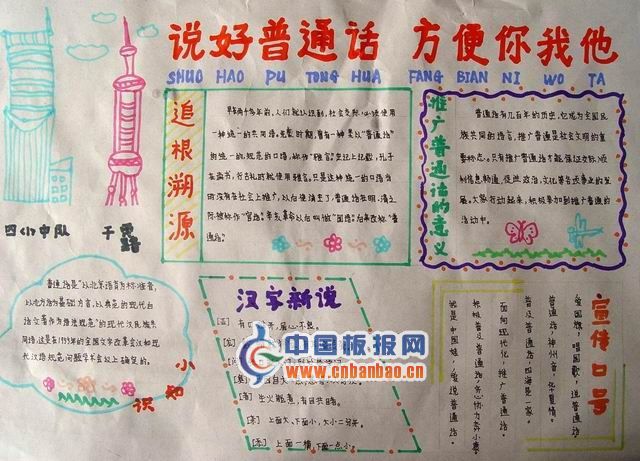 说好普通话 方便你我他
SHUO HAO PU TONG HUA FANG BIAN NI WO TA
追根溯源
早在两千多年前,人们就认识到,社会交际必须使用
一种统一的共同语。
的统一的、规范的口语,称作“雅言”。史记上记载,孔子
在读书、行占礼时就使用雅言。只是这种统一的口语当
时没有在社会上推广,
所被称作“官话”。辛亥革命以后叫做“国语”。后来改称“普
通话”。
推广普通话的意义
普通话有几百年的历史,它成为全国民
族共同的语言,推广普通话是社会文明的重
要标志。只有推广普通话才能保证交际顺
利,信息畅通,促进政治、文化等各项事业的发
展。大家行动起来,积极参加到推广普通话的
活动中。
四(1)中队
于雯
普通话是“以北京语音为标准音,
以北方话为基础方言,以典范的现代白
话文著作为语法规范”的现代汉民族共
同语,这是在1955年的全国文字改革会议和现
代汉语规范问题学术会议上确定的。
小知识
汉字新说
生火煮煮,有目共睹。
上面大、下面小,大小二分开。
上面一横,下面一点小。
中国板报网
www.cnbanbao.cn
宣传口号
爱国旗,唱国歌,说普通话。
普通话,神州音,华夏情。
普及普通话,四海是一家。
面向现代化,推广普通话。
积极普及普通话,齐心协力奔小康。
我是中国娃,爱说普通话。